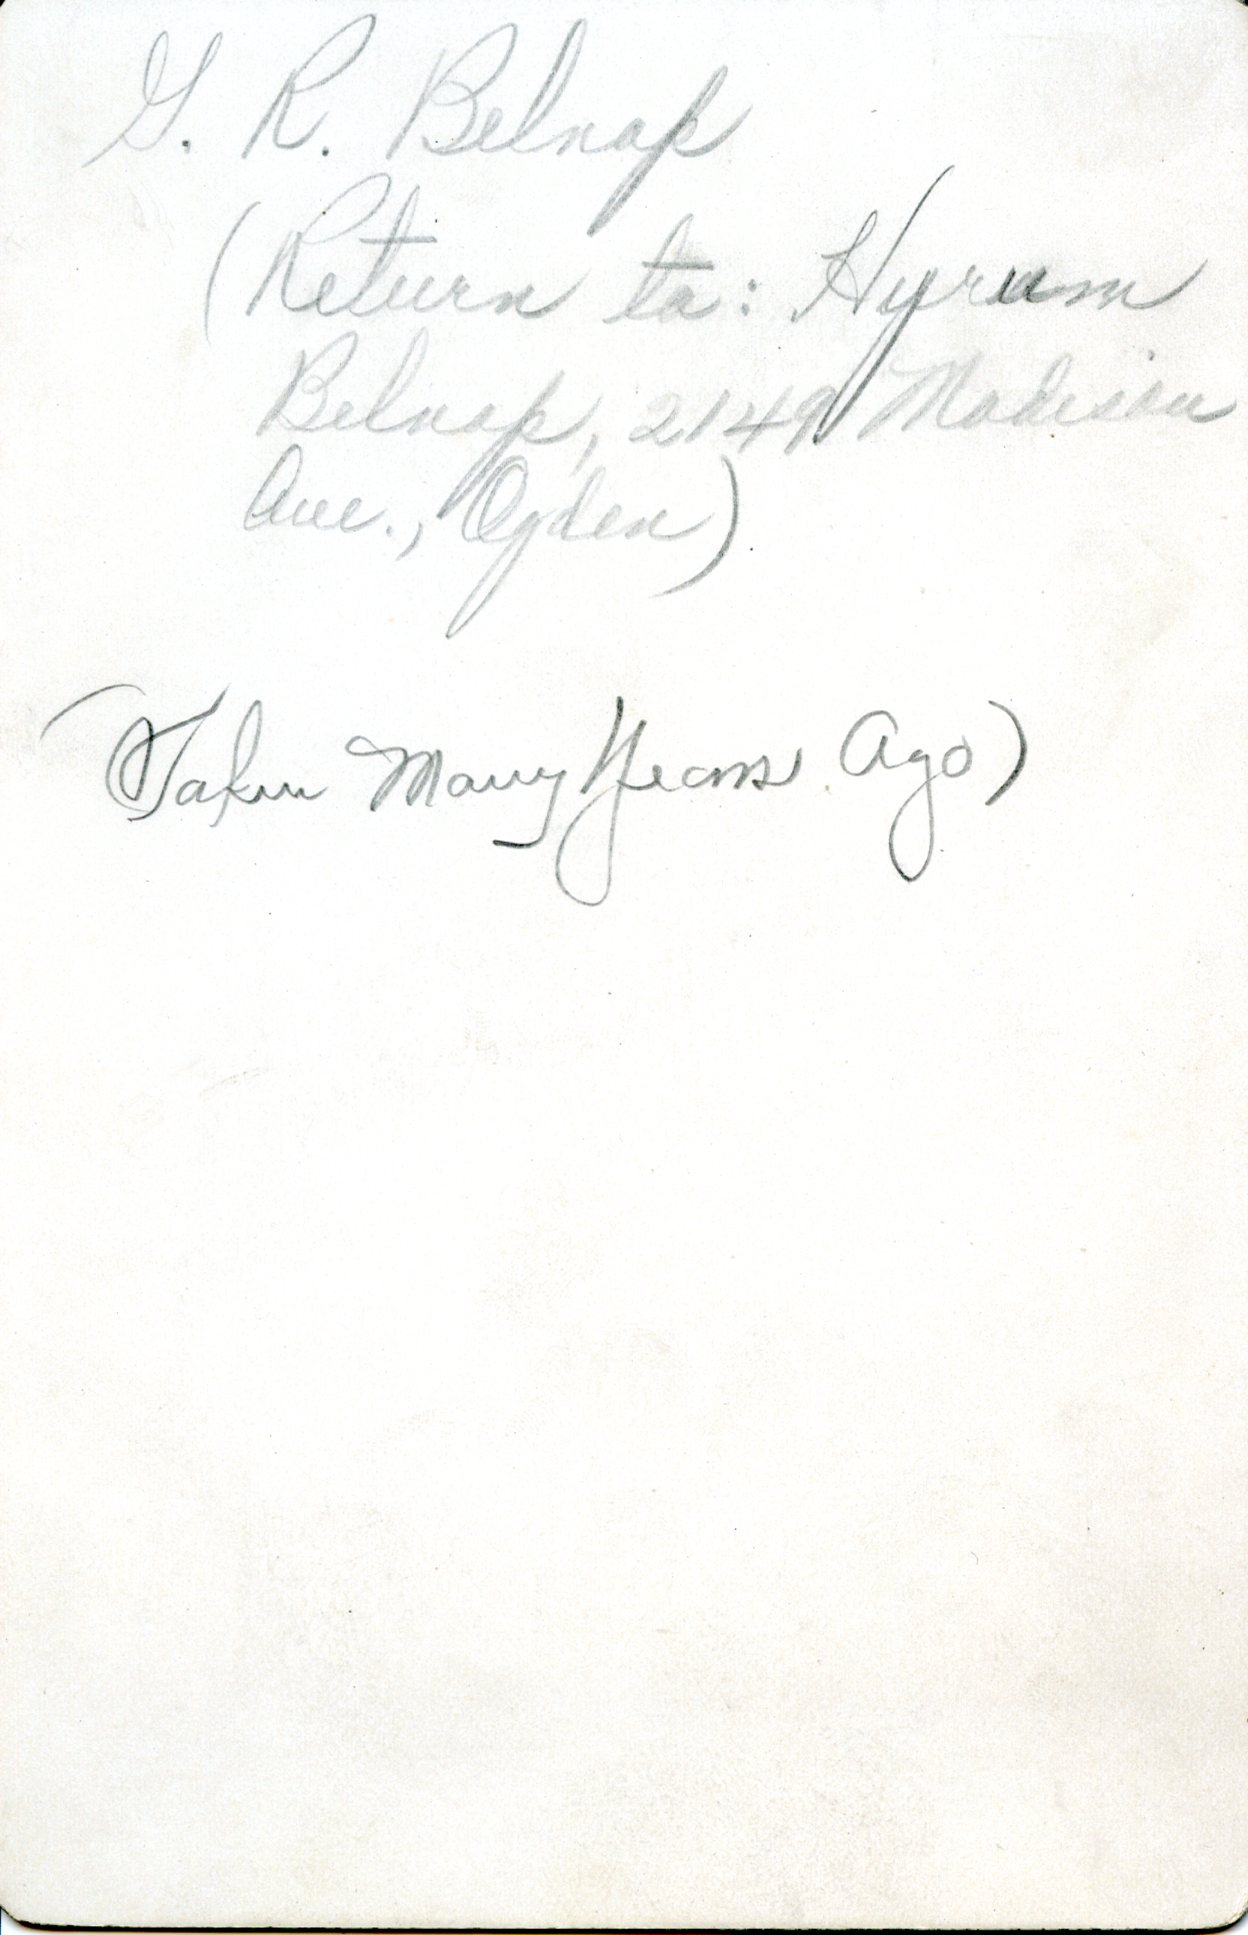 G. R. Belnap
(Return to: Hyrum
Belnap, 2149 Madison
Ave., Ogden)
(Taken Many Years Ago)